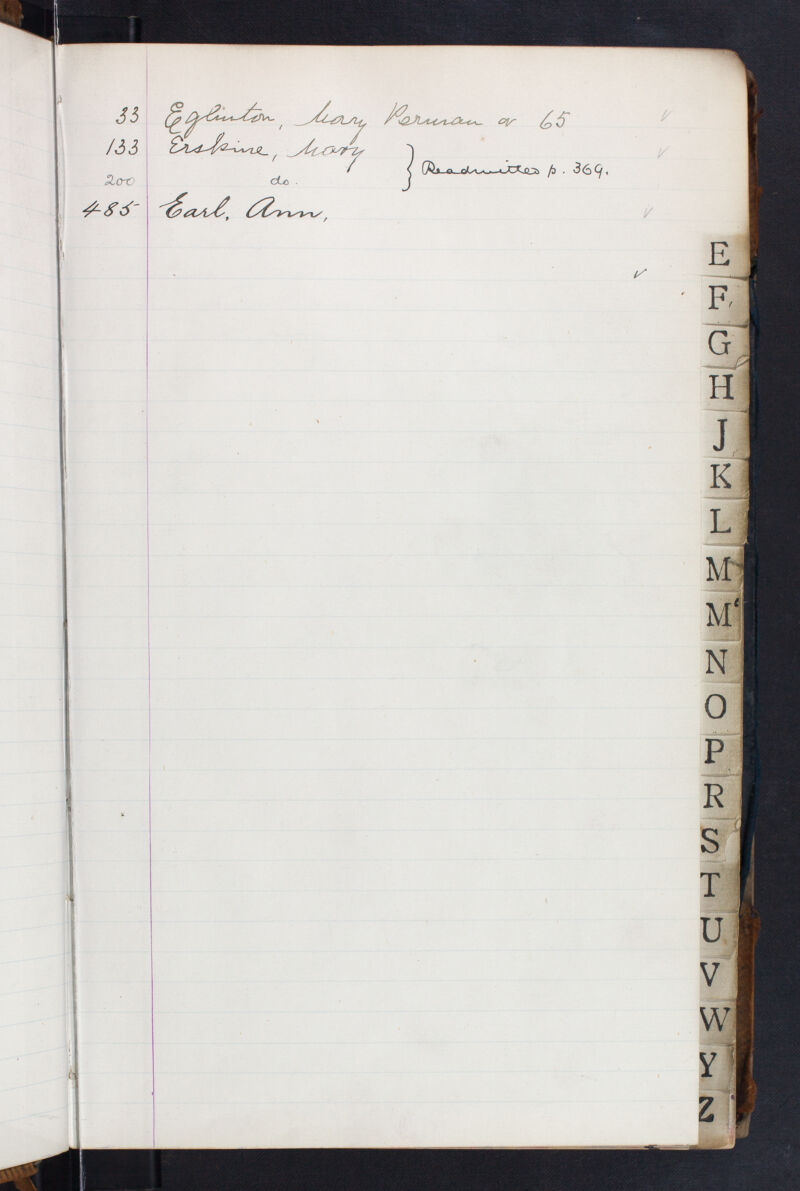 33 Eglinton, Mary Perman or 65 v
133 Erskine, Mary } Readmitted p. 369. v
200 do.
485 Earl, Ann, v
v
E
F
G
H
J
K
L
M
Mc
N
O
P
R
S
T
U
V
W
Y
Z